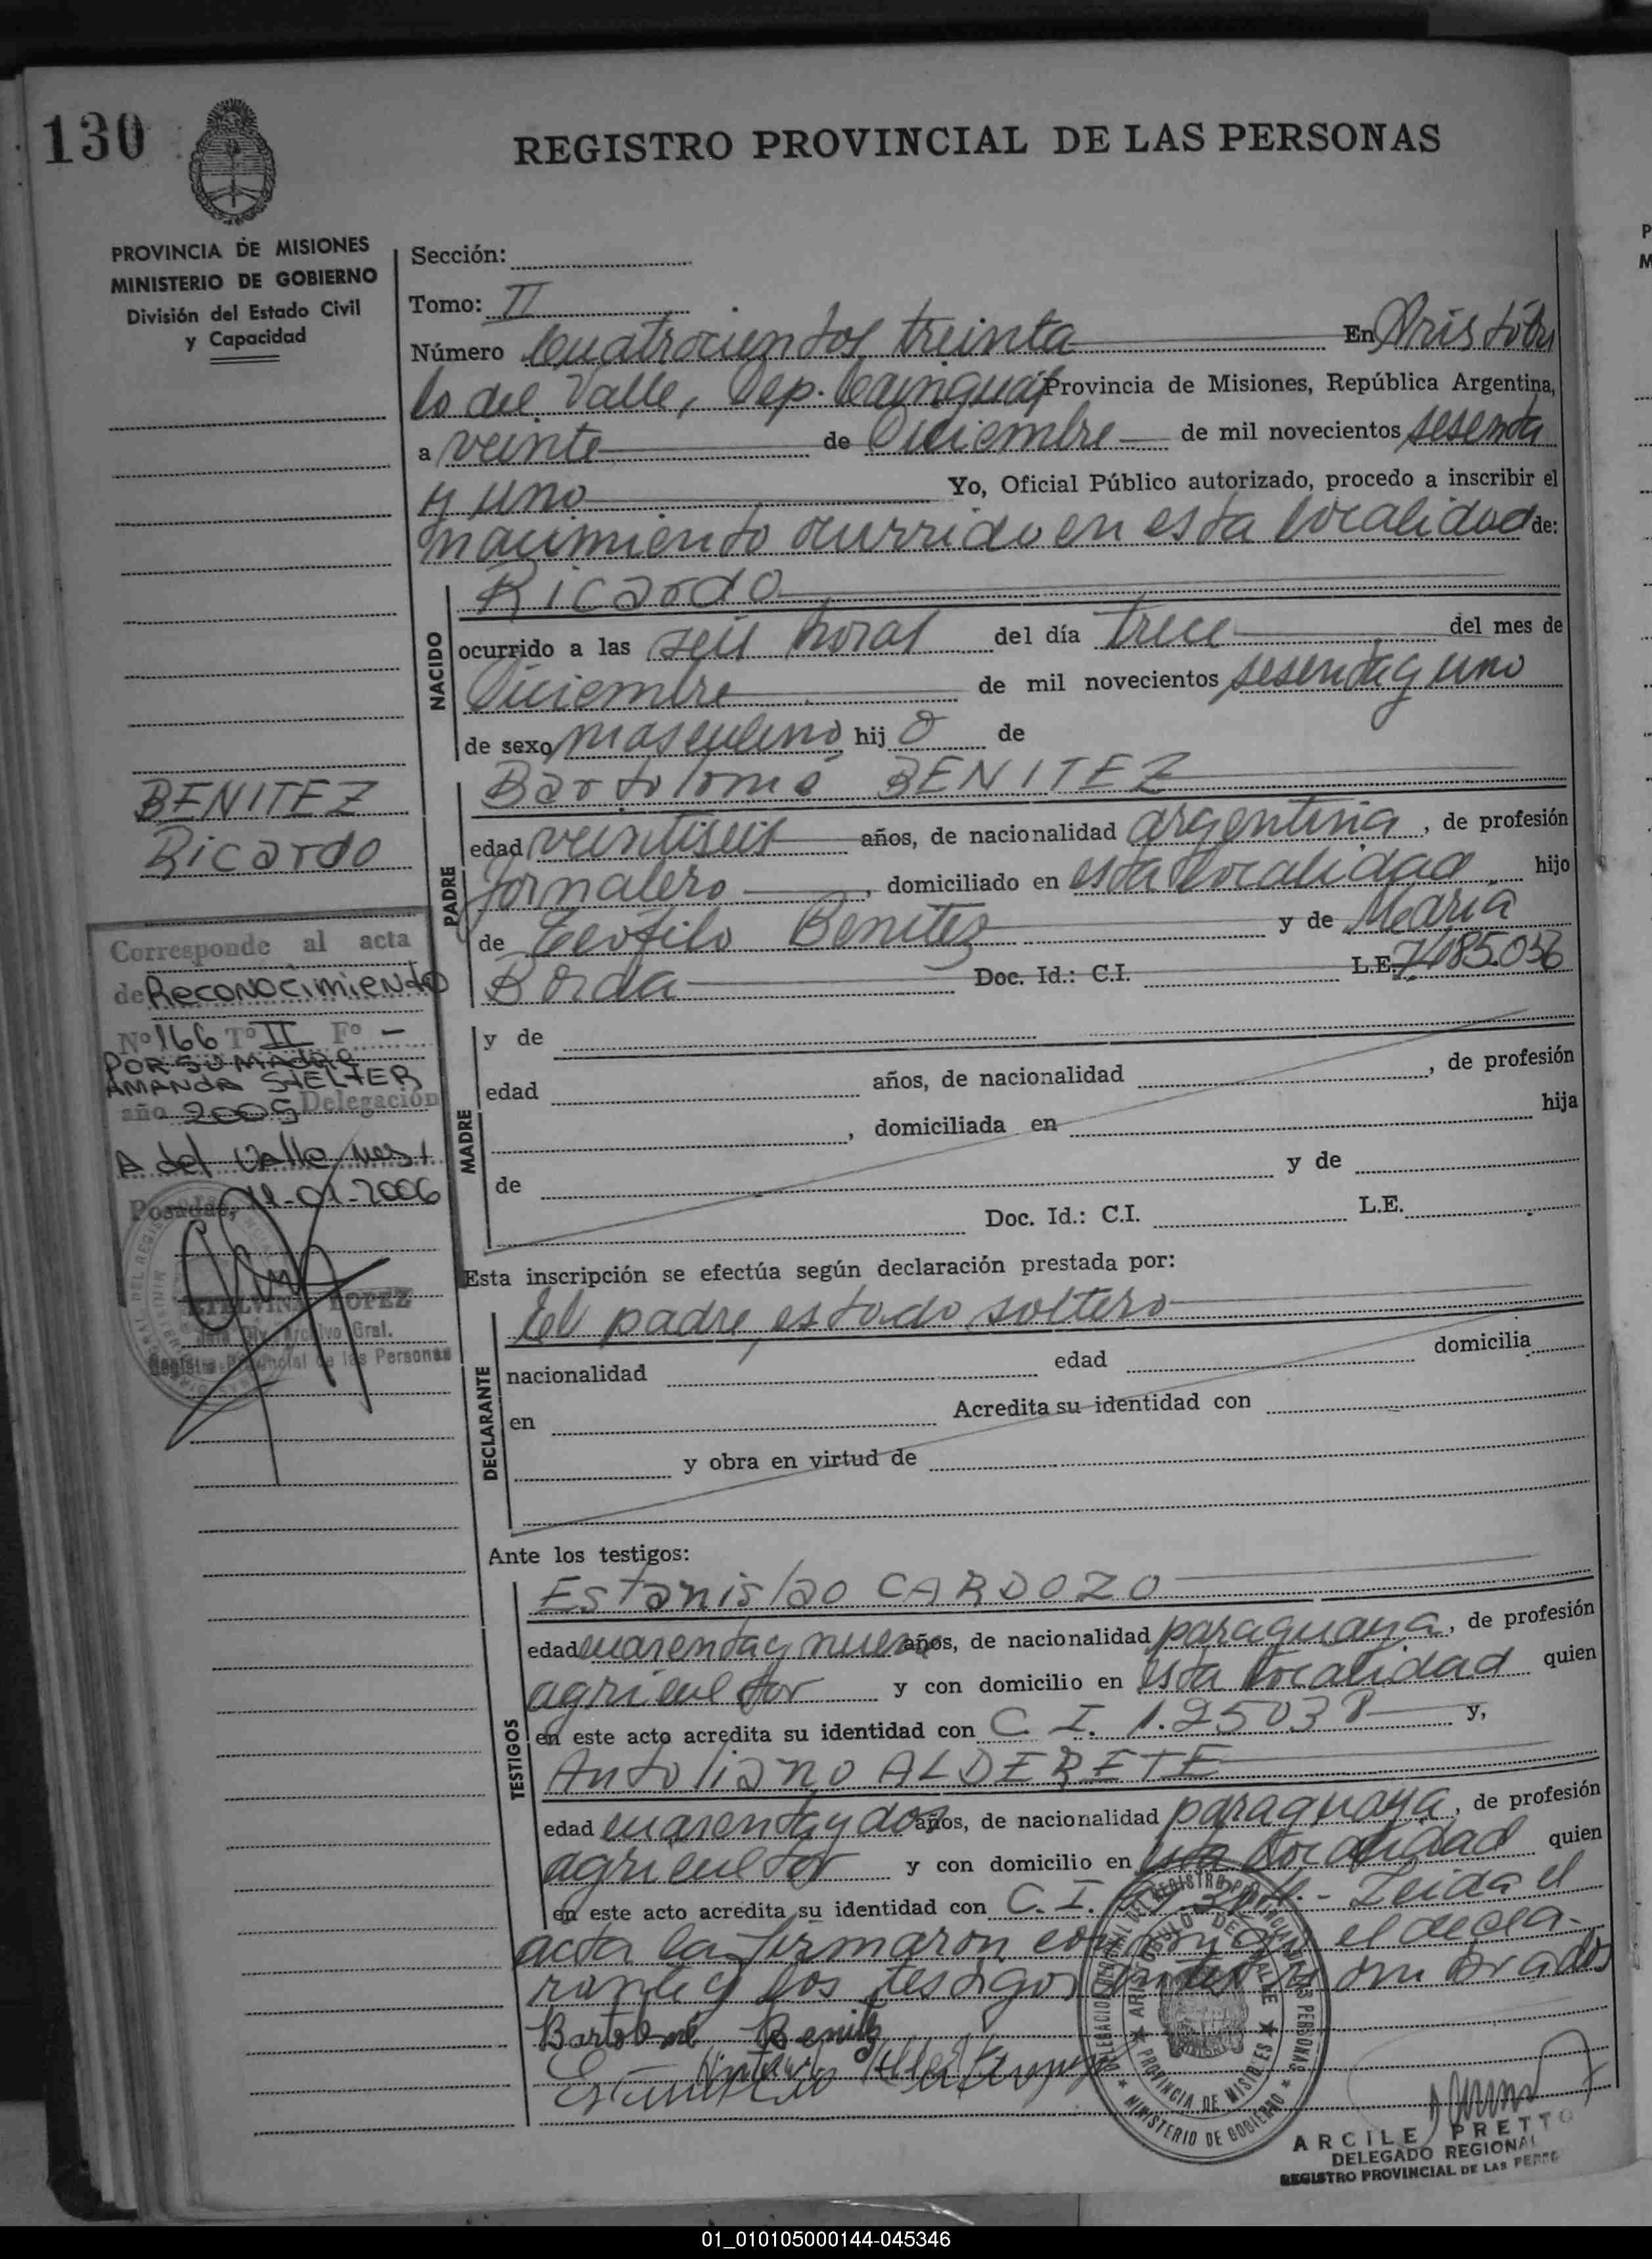 130
REGISTRO PROVINCIAL DE LAS PERSONAS
PROVINCIA DE MISIONES
MINISTERIO DE GOBIERNO
División del Estado Civil
y Capacidad
Sección:
Tomo: II
Número Cuatrocientos treinta En Aristóbu
lo del Valle, Dep. Cainguás Provincia de Misiones, República Argentina,
a veinte de Diciembre de mil novecientos sesenta
y uno Yo, Oficial Público autorizado, procedo a inscribir el
nacimiento ocurrido en esta localidad de:
NACIDO
Ricardo
ocurrido a las seis horas del día trece del mes de
Diciembre de mil novecientos sesenta y uno
de sexo masculino hij o de
BENITEZ
Ricardo
PADRE
Bartolomé BENITEZ
edad veintiseis años, de nacionalidad argentina, de profesión
Jornalero, domiciliado en esta localidad hijo
de Teofilo Benitez y de María
Borda Doc. Id.: C.I. L.E. 7.485.036
Corresponde al acta
de Reconocimiento
Nº 166 Tº II Fº -
POR SU MADRE
AMANDA STELTER
año 2005 Delegación
A del Valle, Mnes
Posadas, 11-01-2006
ETELVINA LOPEZ
Jefa Div. Archivo Gral.
Registro Provincial de las Personas
MADRE
y de
edad años, de nacionalidad , de profesión
, domiciliada en hija
de y de
Doc. Id.: C.I. L.E.
Esta inscripción se efectúa según declaración prestada por:
DECLARANTE
El padre, estado soltero
nacionalidad edad domicilia
en Acredita su identidad con
y obra en virtud de
Ante los testigos:
TESTIGOS
Estanislao CARDOZO
edad cuarenta y nueve años, de nacionalidad paraguaya, de profesión
agricultor y con domicilio en esta localidad quien
en este acto acredita su identidad con C. I. 1.25038 y,
Antoliano ALDERETE
edad cuarenta y dos años, de nacionalidad paraguaya, de profesión
agricultor y con domicilio en esta localidad quien
en este acto acredita su identidad con C. I. Leida el
acta la firmaron conmigo el decla-
rante y los testigos antes nombrados
Bartolomé Benitez
DELEGACION REGIONAL DEL REGISTRO PROVINCIAL DE LAS PERSONAS
ARISTOBULO DEL VALLE
PROVINCIA DE MISIONES
MINISTERIO DE GOBIERNO
ARCILE PRETTO
DELEGADO REGIONAL
REGISTRO PROVINCIAL DE LAS PERSS
01_010105000144-045346